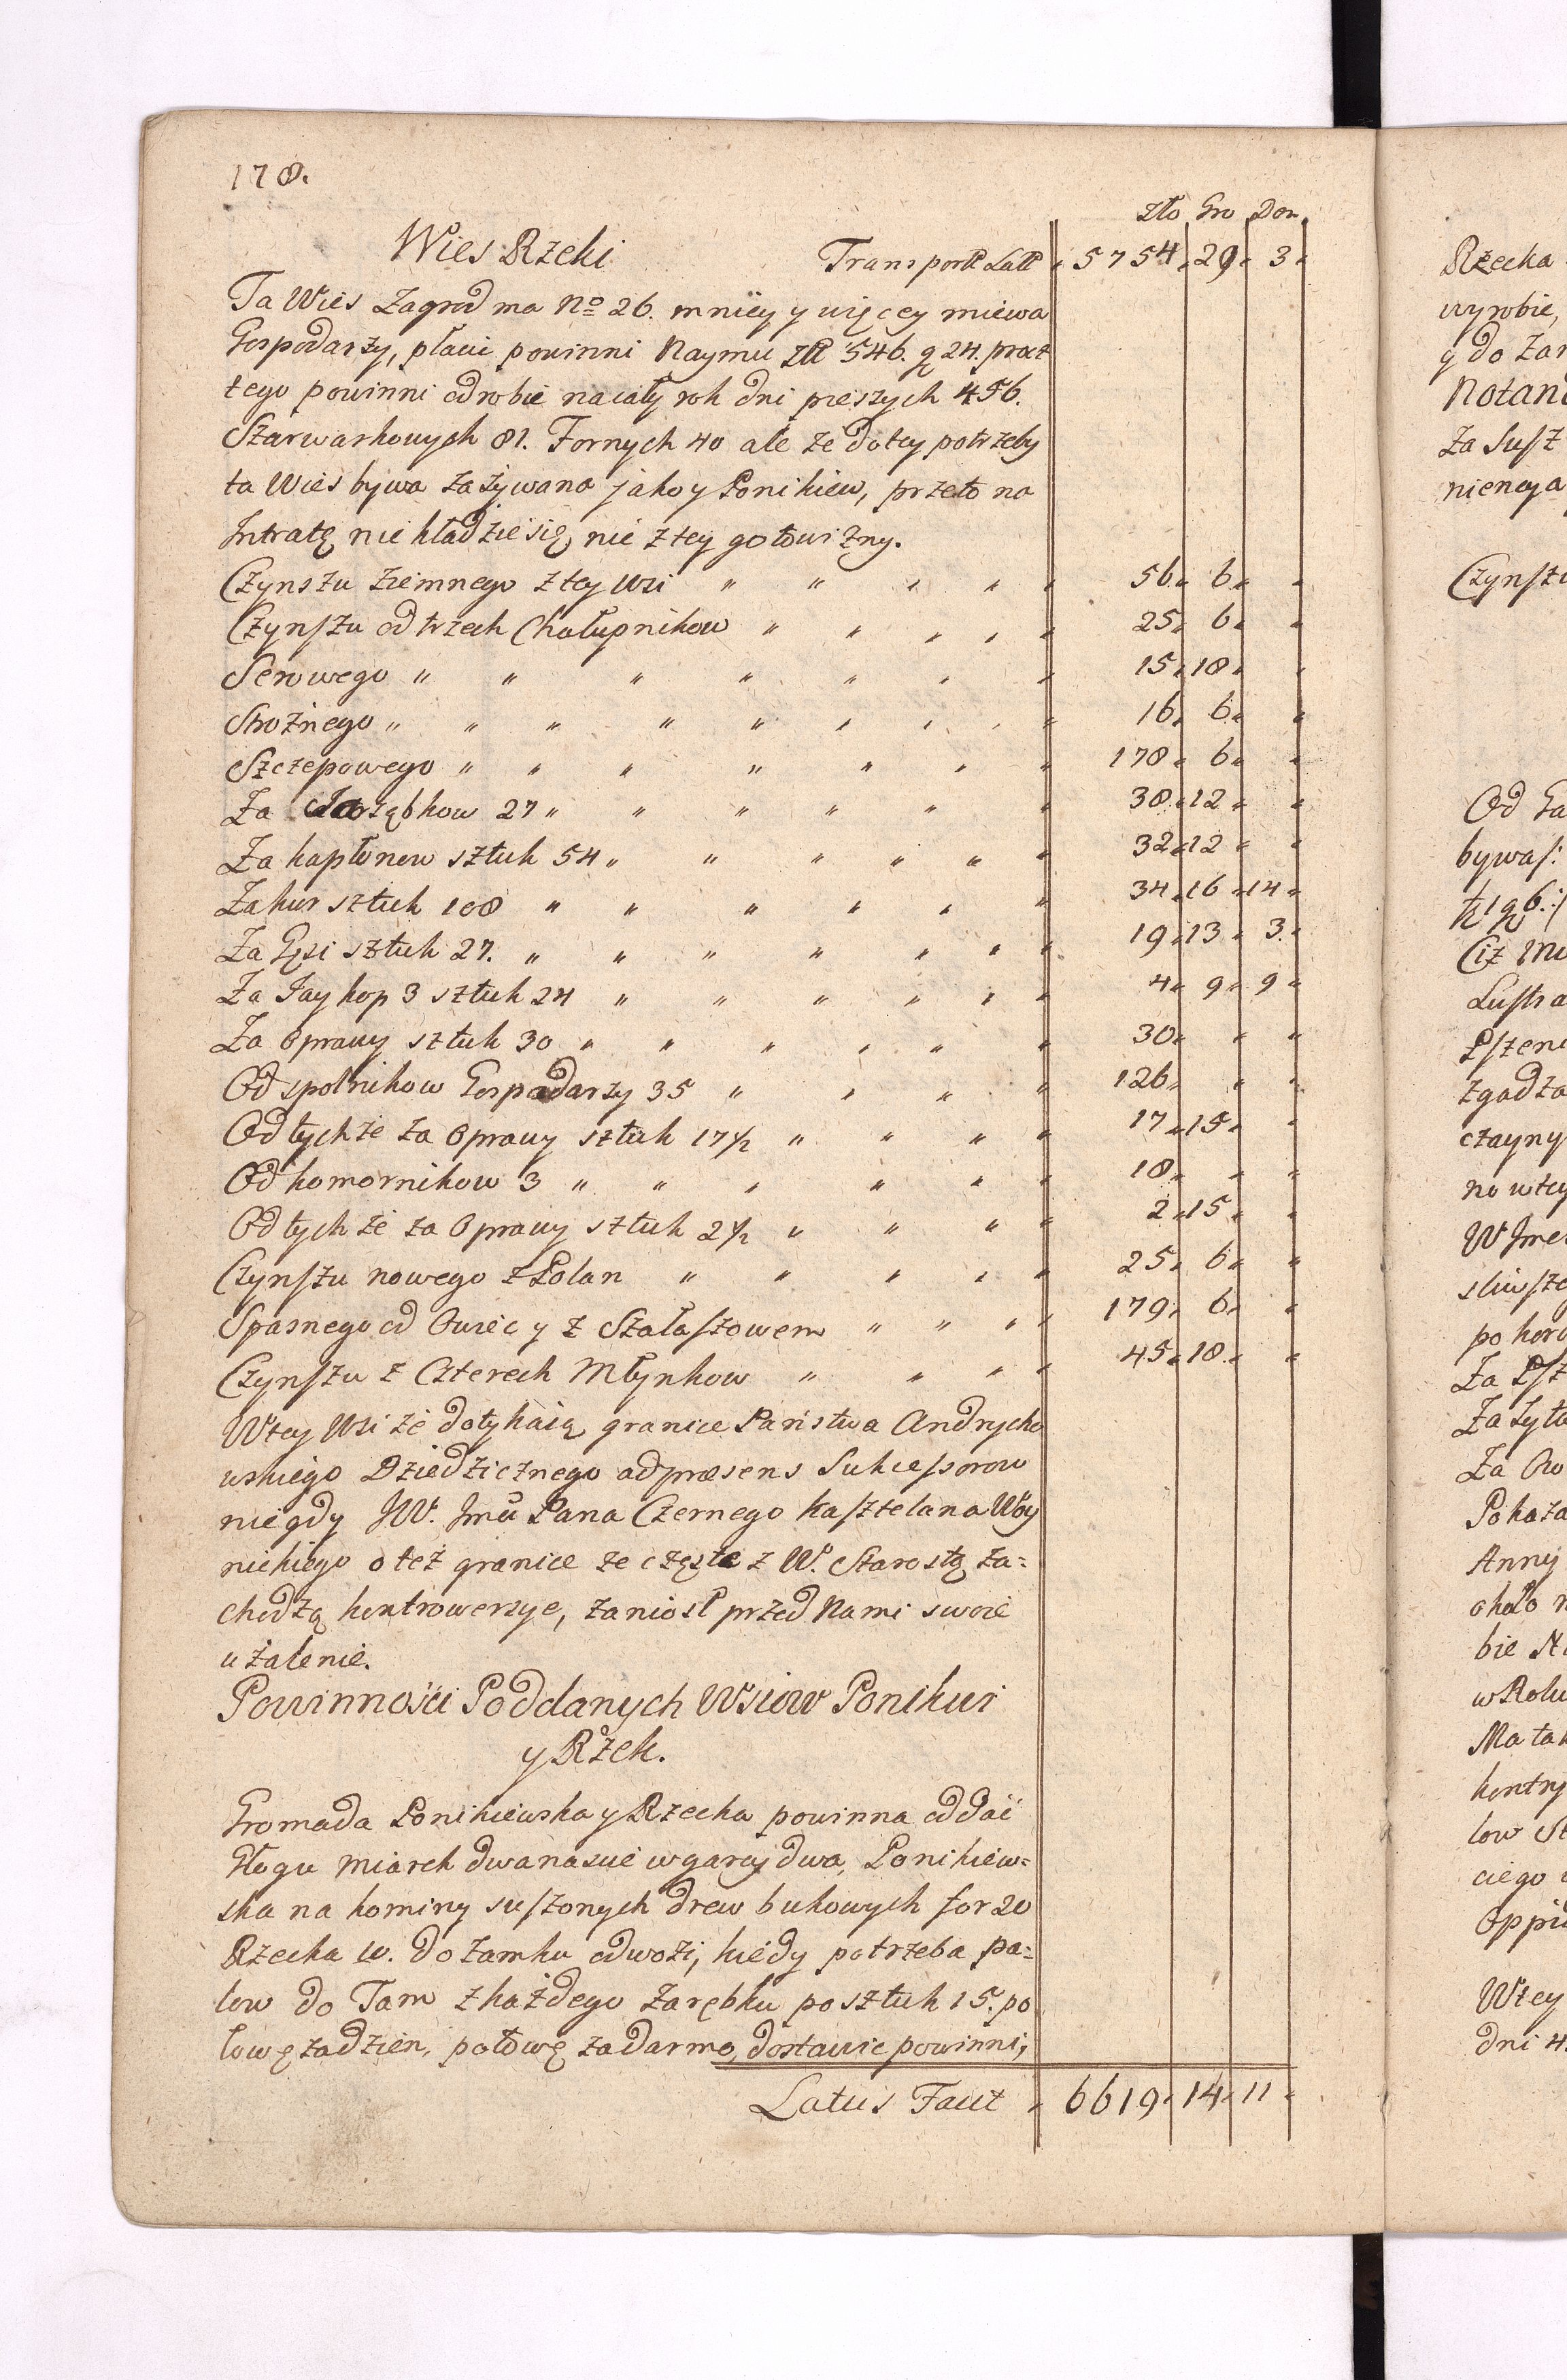 178.
Zło Gro Den.
Wies Rzeki Transport Latt 5754 29 3
Ta Wies Zagrod ma No 26. mniiey y więcey miewa
Gospodarzy, płacic powinni Naymu Złł 546. g 24. procz
tego powinni odrobic na cały rok dni pieszych 456.
Szarwarkowych 81. Fornych 40 ale ze do tey potrzeby
ta Wies bywa zażywana jako y Ponikiew, przeto na
Intratę nie kładzie się, nie z tey gotowizny.
Czynszu Ziemnego z tey Wsi " " " " " 56 6
Czynszu od trzech Chałupnikow " " " " " 25 6
Serowego " " " " " " " 15 18
Strożnego " " " " " " " " 16 6
Szczepowego " " " " " " " 178 6
Za Jarząbkow 27 " " " " " " 38 12
Za kapłonow sztuk 54 " " " " " " 32 12
Za kur sztuk 108 " " " " " " 34 16 14
Za Gęsi sztuk 27. " " " " " " " 19 13 3
Za Jay kop 3 sztuk 24 " " " " " " 4 9 9
Za Oprawy sztuk 30 " " " " " " 30
Od spolnikow Gospodarzy 35 " " " " 126
Od tychże za Oprawy sztuk 17 1/2 " " " " 17 15
Od komornikow 3 " " " " " " 18
Od tychże za Oprawy sztuk 2 1/2 " " " " 2 15
Czynszu nowego z Polan " " " " " 25 6
Spasnego od Owiec y z Szałaszowem " " " " 179 6
Czynszu z Czterech Młynkow " " " " 45 18
W tey Wsi że dotykaią granice Państwa Andrycho
wskiego Dziedzicznego ad præsens Sukcessorow
niegdy JW. Jmci Pana Czernego Kasztelana Woy
nickiego o też granice ze częste z W. Starostą za=
chodzą kontrowersye, zaniosł przed Nami swoie
użalenie.
Powinności Poddanych Wsiow Ponikwi
y Rzek.
Gromada Ponikiewska y Rzecka powinna oddać
Głogu miarek dwanascie w garcy dwa, Ponikiew=
ska na kominy suszonych drew bukowych for 20
Rzecka 10. do zamku odwozi, kiedy potrzeba pa=
low do Tam z każdego Zarębku po sztuk 15. po
łowę za dzien, połowę za darmo dostawic powinni,
Latus Facit 6619 14 11
Rzecka
wyrobie,
y do Zar
Notan
Za Susz
niency a
Czynszu
Od Ga
bywas:
Ciż Mu
Lustra
Pszeni
zgadza
czayny
no w tey
W Jme
sliwsze
po koro
Za Psz
Za Zyta
Za Ow
Pokaza
Anny
około
bie
w Roku
Ma tak
kontry
low St
ciego
Oppi
W tey
dni 4